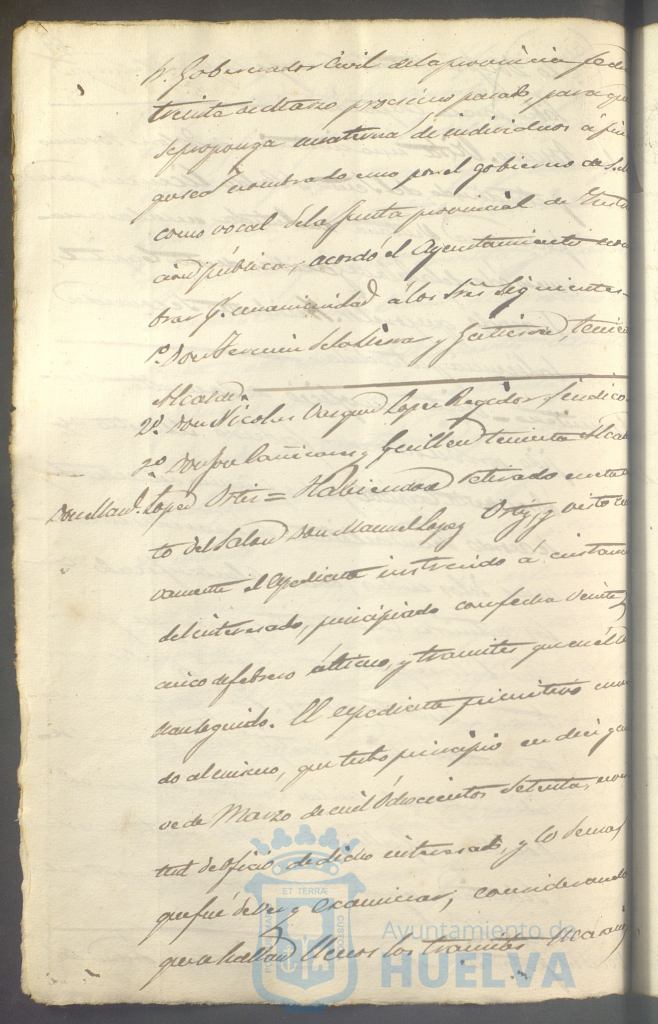 Sr. Gobernador Civil de la provincia fecha
treinta de Marzo procsimo pasado, para que
se proponga una terna de individuos á fin
que sea nombrado uno por el gobierno de S.
como vocal de la Junta provincial de Instruc
cion pública, acordó el Ayuntamiento nom
brar pr. unanimidad á los Sres. siguientes
1º. Don Fermin de la Sierra y Gutierrez, teniente
Alcalde.
2º. Don Nicolas Vazquez Lopez Regidor Sindico
3º Don José Cañizares y Guillen teniente Alcal
Don Manl. Lopez Ortiz = Habiendose retirado en este ac
to del Salon Don Manuel Lopez Ortiz, y visto nue
vamente el espediente instruido á instancia
del interesado, principiado con fecha veinte y
cinco de febrero último, y tramites que en él se
han seguido. El espediente primitivo uni
do al mismo, que tubo principio en diez y nue
ve de Marzo de mil ochocientos setenta, en vir
tud de oficio de dicho interesado, y lo demas
que fué de ver y examinar, considerando
que se hallan llenos los tramites
ET TERRÆ
CUSTODIA
Ayuntamiento de
HUELVA